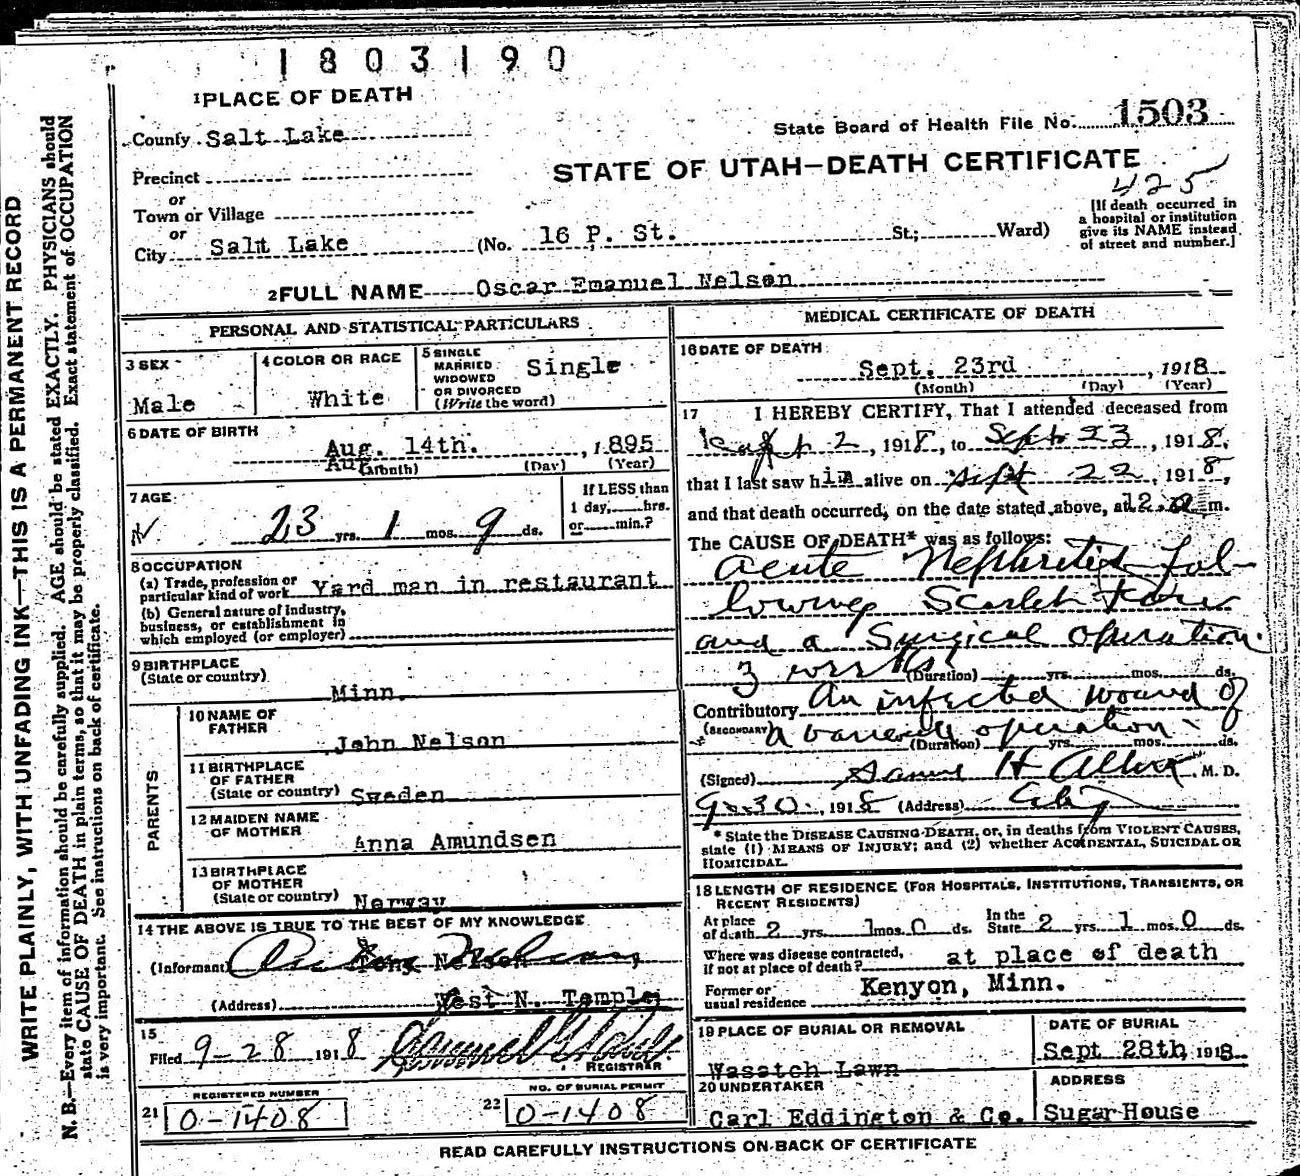 1803190
1 PLACE OF DEATH
County Salt Lake
State Board of Health File No. 1503
STATE OF UTAH—DEATH CERTIFICATE
425
Precinct
or
Town or Village
or
City Salt Lake (No. 16 P. St. St.; Ward)
[If death occurred in
a hospital or institution
give its NAME instead
of street and number.]
2 FULL NAME Oscar Emanuel Nelson
PERSONAL AND STATISTICAL PARTICULARS
3 SEX
Male
4 COLOR OR RACE
White
5 SINGLE
MARRIED
WIDOWED
OR DIVORCED
(Write the word)
Single
6 DATE OF BIRTH
Aug. 14th. , 1895
Aug
(Month) (Day) (Year)
7 AGE
23 yrs. 1 mos. 9 ds.
If LESS than
1 day, hrs.
or min.?
8 OCCUPATION
(a) Trade, profession or
particular kind of work Yard man in restaurant
(b) General nature of industry,
business, or establishment in
which employed (or employer)
9 BIRTHPLACE
(State or country)
Minn.
PARENTS
10 NAME OF
FATHER
John Nelson
11 BIRTHPLACE
OF FATHER
(State or country) Sweden
12 MAIDEN NAME
OF MOTHER
Anna Amundsen
13 BIRTHPLACE
OF MOTHER
(State or country) Norway
14 THE ABOVE IS TRUE TO THE BEST OF MY KNOWLEDGE
(Informant) Nelson
(Address) West N. Temple
15
Filed 9-28 1918
REGISTRAR
REGISTERED NUMBER
21 0-1408
NO. OF BURIAL PERMIT
22 0-1408
MEDICAL CERTIFICATE OF DEATH
16 DATE OF DEATH
Sept. 23rd , 1918
(Month) (Day) (Year)
17 I HEREBY CERTIFY, That I attended deceased from
Sept 2, 1918, to Sept 23, 1918,
that I last saw him alive on Sept 22, 1918,
and that death occurred, on the date stated above, at 12. a m.
The CAUSE OF DEATH* was as follows:
Acute Nephritis fol-
lowing Scarlet Fever
and a Surgical operation.
3 wks (Duration) yrs. mos. ds.
Contributory An infected wound of
(SECONDARY) a operation
(Duration) yrs. mos. ds.
(Signed) H , M. D.
9-30-, 1918 (Address) City
* State the DISEASE CAUSING DEATH, or, in deaths from VIOLENT CAUSES,
state (1) MEANS OF INJURY; and (2) whether ACCIDENTAL, SUICIDAL OR
HOMICIDAL.
18 LENGTH OF RESIDENCE (FOR HOSPITALS, INSTITUTIONS, TRANSIENTS, OR
RECENT RESIDENTS)
At place
of death 2 yrs. 1 mos. 0 ds.
In the
State 2 yrs. 1 mos. 0 ds.
Where was disease contracted,
if not at place of death? at place of death
Former or
usual residence Kenyon, Minn.
19 PLACE OF BURIAL OR REMOVAL
Wasatch Lawn
DATE OF BURIAL
Sept 28th, 1918
20 UNDERTAKER
Carl Eddington & Co.
ADDRESS
Sugar House
READ CAREFULLY INSTRUCTIONS ON BACK OF CERTIFICATE
WRITE PLAINLY, WITH UNFADING INK—THIS IS A PERMANENT RECORD
N. B.—Every item of information should be carefully supplied. AGE should be stated EXACTLY. PHYSICIANS should
state CAUSE OF DEATH in plain terms, so that it may be properly classified. Exact statement of OCCUPATION
is very important. See instructions on back of certificate.